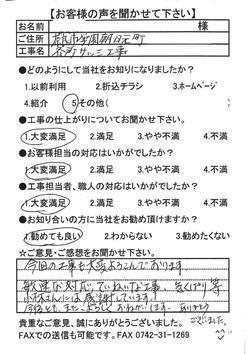 【お客様の声を聞かせて下さい】
お名前 様
ご住所 奈良市学園朝日元町
工事名 工事
●どのようにして当社をお知りになりましたか?
1.以前利用 2.折込チラシ 3.ホームページ
4.紹介 5.その他( )
●工事の仕上がりについてお聞かせ下さい。
1.大変満足 2.満足 3.やや不満 4.不満
●お客様担当の対応はいかがでしたか?
1.大変満足 2.満足 3.やや不満 4.不満
●工事担当者、職人の対応はいかがでしたか?
1.大変満足 2.満足 3.やや不満 4.不満
●お知り合いの方に当社をお勧め頂けますか?
1.勧めても良い 2.わからない 3.勧めたくない
☆ご意見・ご感想をお聞かせ下さい。
今回の工事も大変よろこんでおります。
敏速な対応、ていねいな工事、気くばり等
小林さんには感謝しています!
今後とも、また、よろしくおねがいします。ありがとう
ございました。
貴重なご意見、誠にありがとうございました。
FAXでの送信も可能です。FAX 0742-31-1269